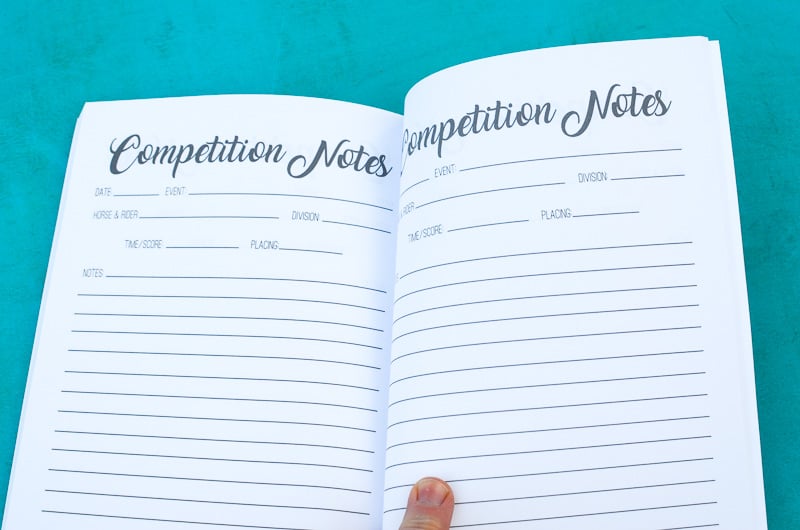 Competition Notes
DATE: EVENT:
HORSE & RIDER: DIVISION:
TIME/SCORE: PLACING:
NOTES:
Competition Notes
EVENT:
& RIDER: DIVISION:
TIME/SCORE: PLACING: